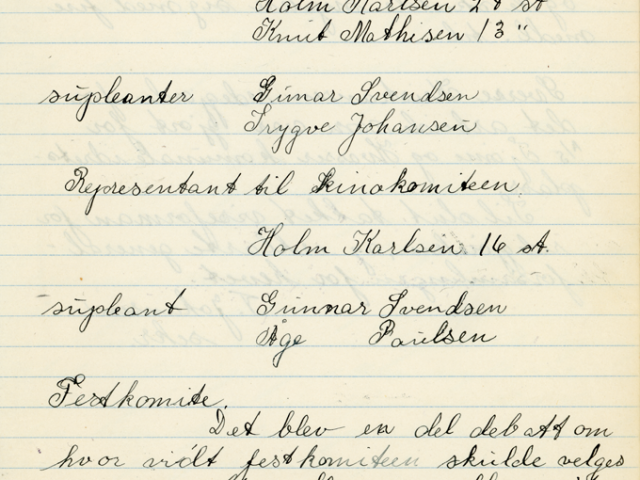 Holm Karlsen 28 st
Knut Mathisen 13 "
supleanter Gunar Svendsen
Trygve Johansen
Representant til kinokomiteen
Holm Karlsen 16 st.
supleant Gunnar Svendsen
Åge Paulsen
Festkomite.
Det blev en del debatt om
hvor vidt festkomiteen skulde velges